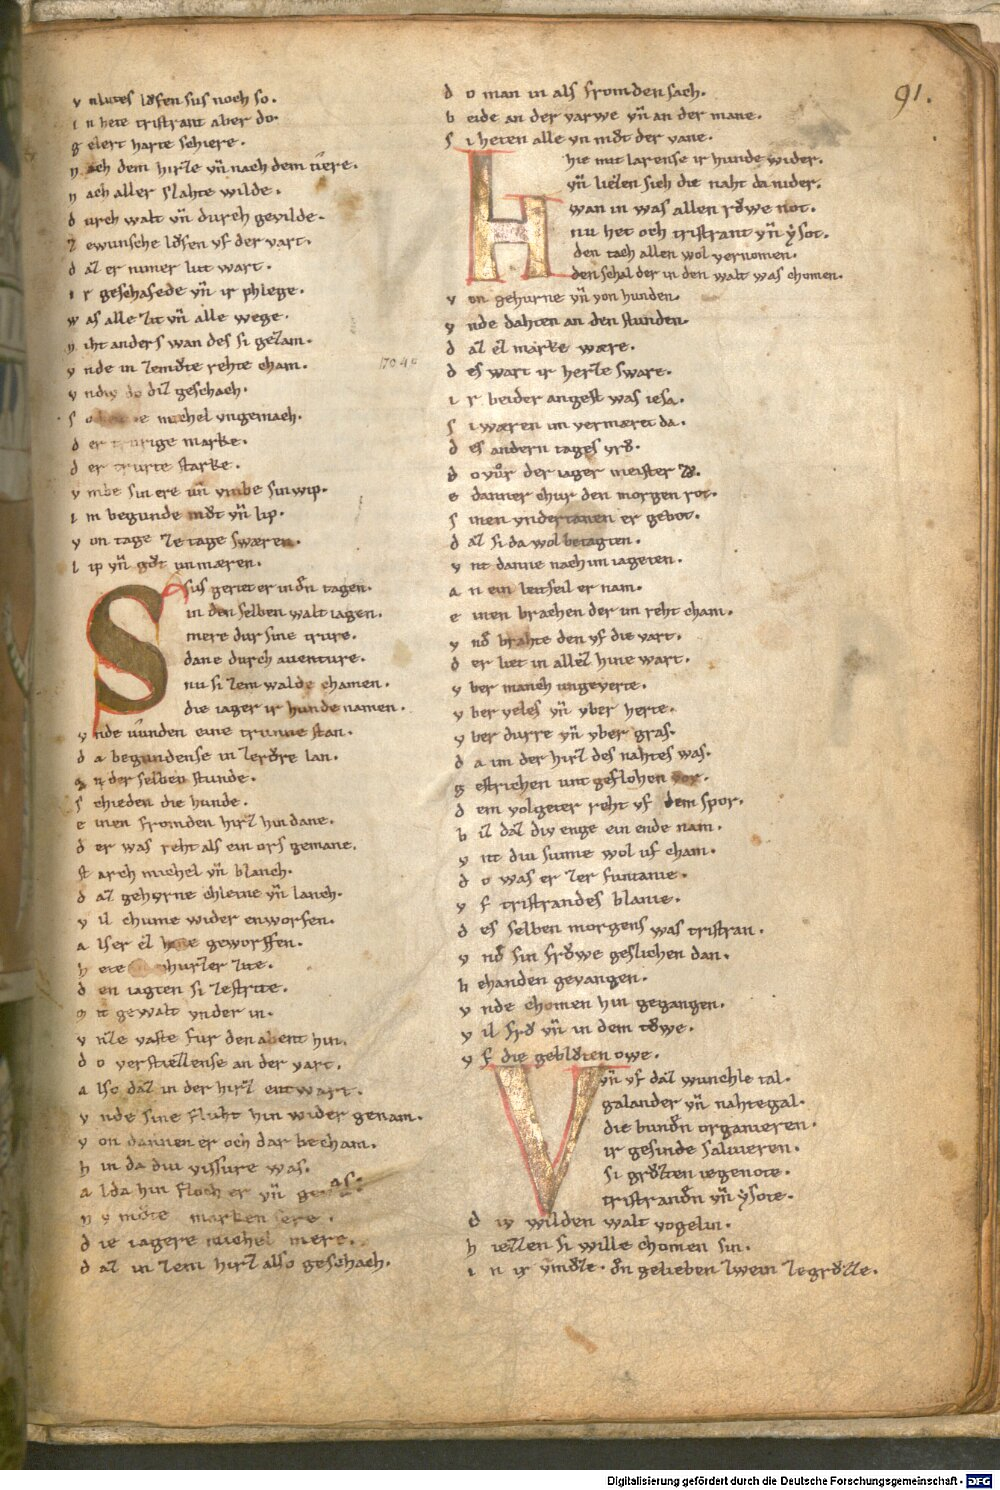 v nlutes lǒfen sus noch so.
i n hete tristrant aber do.
g elert harte schiere.
n ach dem hirze vn̄ nach dem tiere.
n ach aller slahte wilde.
d urch walt vn̄ durch gevilde.
z ewunsche lǒfen vf der vart.
d az er nimer lut wart.
i r geschafede vn̄ ir phlege.
w as alle zit vn̄ alle wege.
n iht anders wan des si gezam.
v nde in zemǒte rehte cham.
v ndiv do diz geschach.
s o michel vngemach.
d er trurige marke.
d er trurte starke.
v mbe sin ere vn̄ vmbe sin wip.
i m begunde mǒt vn̄ lip.
v on tage ze tage swæren.
l ip vn̄ gǒt unmæren.
Sus geriet er in dēn tagen.
in den selben walt iagen.
mere dur sine trure.
dane durch auenture.
nu si zem walde chamen.
die iager ir hunde namen.
v nde vunden eine trunne stan.
d a begundense in zerǒre lan.
a n der selben stunde.
s chieden die hunde.
e inen fromden hirz hin dane.
d er was reht als ein ors gemane.
st arch michel vn̄ blanch.
d az gehvrne chleine vn̄ lanch.
v il chume wider enworfen.
a lser ez hete geworffen.
h ete churzer zite.
d en iagten si zestrite.
m it gewalt vnder in.
v nze vaste fur den abent hin.
d o verstiezzense an der vart.
a lso daz in der hirz entwart.
v nde sine fluht hin wider genam.
v on dannen er och dar becham.
h in da diu vissure was.
a lda hin floch er vn̄ genas.
n v mǒte marken sere.
d ie iagere michel mere.
d az in zem hirz also geschach.
91.
d o man in als fromden sach.
b eide an der varwe vn̄ an der mane.
s i heten alle vn mǒt der vane.
Hie mit larense ir hunde wider.
vn̄ liezen sich die naht da nider.
wan in was allen rǒwe not.
nu het och tristrant vn̄ ẏsot.
den tach allen wol vernomen.
den schal der in den walt was chomen.
v on gehurne vn̄ von hunden.
v nde dahten an den stunden.
d az ez marke wære.
d es wart ir herze sware.
i r beider angest was iesa.
s i wæren im vermæret da.
d es andern tages vrǒ.
d o vůr der iager meister zǒ.
e danner chur den morgen rot.
s inen vndertanen er gebot.
d az si da wol betagten.
v nt danne nach im iageten.
a n ein leitseil er nam.
e inen brachen der im reht cham.
v nd̄ brahte den vf die vart.
d er liet in allez hine wart.
v ber manch ungeverte.
v ber veles vn̄ vber herte.
v ber durre vn̄ vber gras.
d a im der hirz des nahtes was.
g estrichen unt geflohen vor.
d em volgeter reht vf dem spor.
b iz daz div enge ein ende nam.
v nt diu sunne wol uf cham.
d o was er zer funtanie.
v f tristrandes blanie.
d es selben morgens was tristran.
v nd̄ sin frǒwe geslichen dan.
b ehanden gevangen.
v nde chomen hin gegangen.
v il frǒ vn̄ in dem tǒwe.
v f die geblǒten owe.
Vn̄ vf daz wunchle tal.
galander vn̄ nahtegal.
die bundēn organieren.
ir gesinde saluieren.
si grǒzten iegenote.
tristrandēn vn̄ ẏsote.
d iv wilden walt vogelin.
h iezzen si wille chomen sin.
i n ir vmǒze. dēn gelieben zwein zegrǒzze.
1704
Digitalisierung gefördert durch die Deutsche Forschungsgemeinschaft - DFG